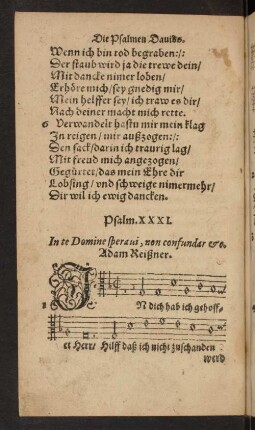 Die Psalmen Dauids.
Wenn ich bin tod begraben:/:
Der staub wird ja die trewe dein/
Mit dancke nimer loben/
Erhöre mich/sey gnedig mir/
Mein helffer sey/ich traw es dir/
Nach deiner macht mich rette.
6 Verwandelt hastu mir mein klag
In reigen/mir außzogen:/:
Den sack/darin ich traurig lag/
Mit freud mich angezogen/
Gegürtet/das mein Ehre dir
Lobsing/vnd schweige nimermehr/
Dir wil ich ewig dancken.
Psalm.XXXI.
In te Domine speraui, non confundar &c.
Adam Reißner.
1 IN dich hab ich gehoff-
et Herr/ Hilff daß ich nicht zuschanden
werd